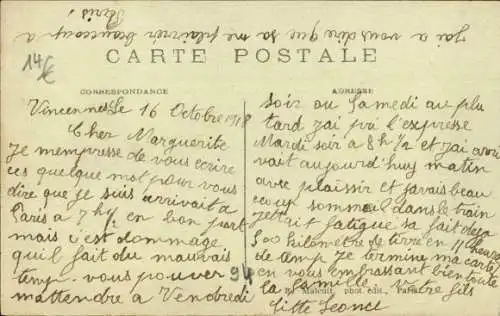 j'ai a vous dire que sa me plairrér beaucoup a
Paris!
14€
CARTE POSTALE
CORRESPONDANCE
Vincennes Le 16 Octobre 1918
Cher Marguerite
Je mempresse de vous ecrire
ces quelque mot pour vous
dire que je suis arrivait a
Paris a 7 h ½ en bon port
mais c'est dommage
qu'il fait du mauvais
temp. vous pouver
mattendre a Vendredi
94
ADRESSE
soir ou Samedi au plu
tard j'ai pri l'expresse
Mardi soir a 8 h ½ et j'ai arri
vait aujourd'huy matin
avec plaissir et j'avais beau
coup sommeil dans le train
jettait fatigue sa fait deja
500 kilometre de terre en 11 heure
de temp Je termine ma carte
en vous embrassant bien toute
la famille Votre fils
Malcuit, phot. édit., Paris
Leonce